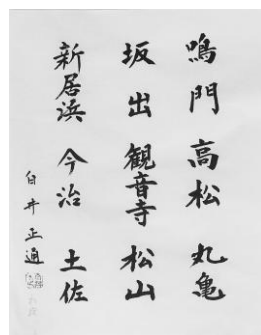 鳴門 高松 丸亀
坂出 観音寺 松山
新居浜 今治 土佐
白井正通